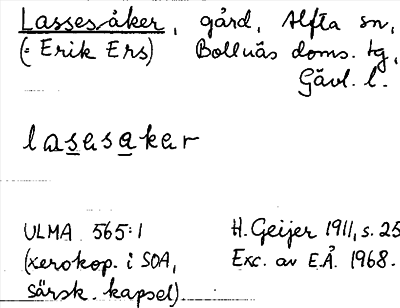 Lassesåker, gård, Alfta sn,
(: Erik Ers) Bollnäs doms. tg,
Gävl. l.
lasesaker
ULMA 565:1 H. Geijer 1911, s. 25
(xerokop. i SOA, Exc. av E.Å. 1968.
särsk. kapsel)